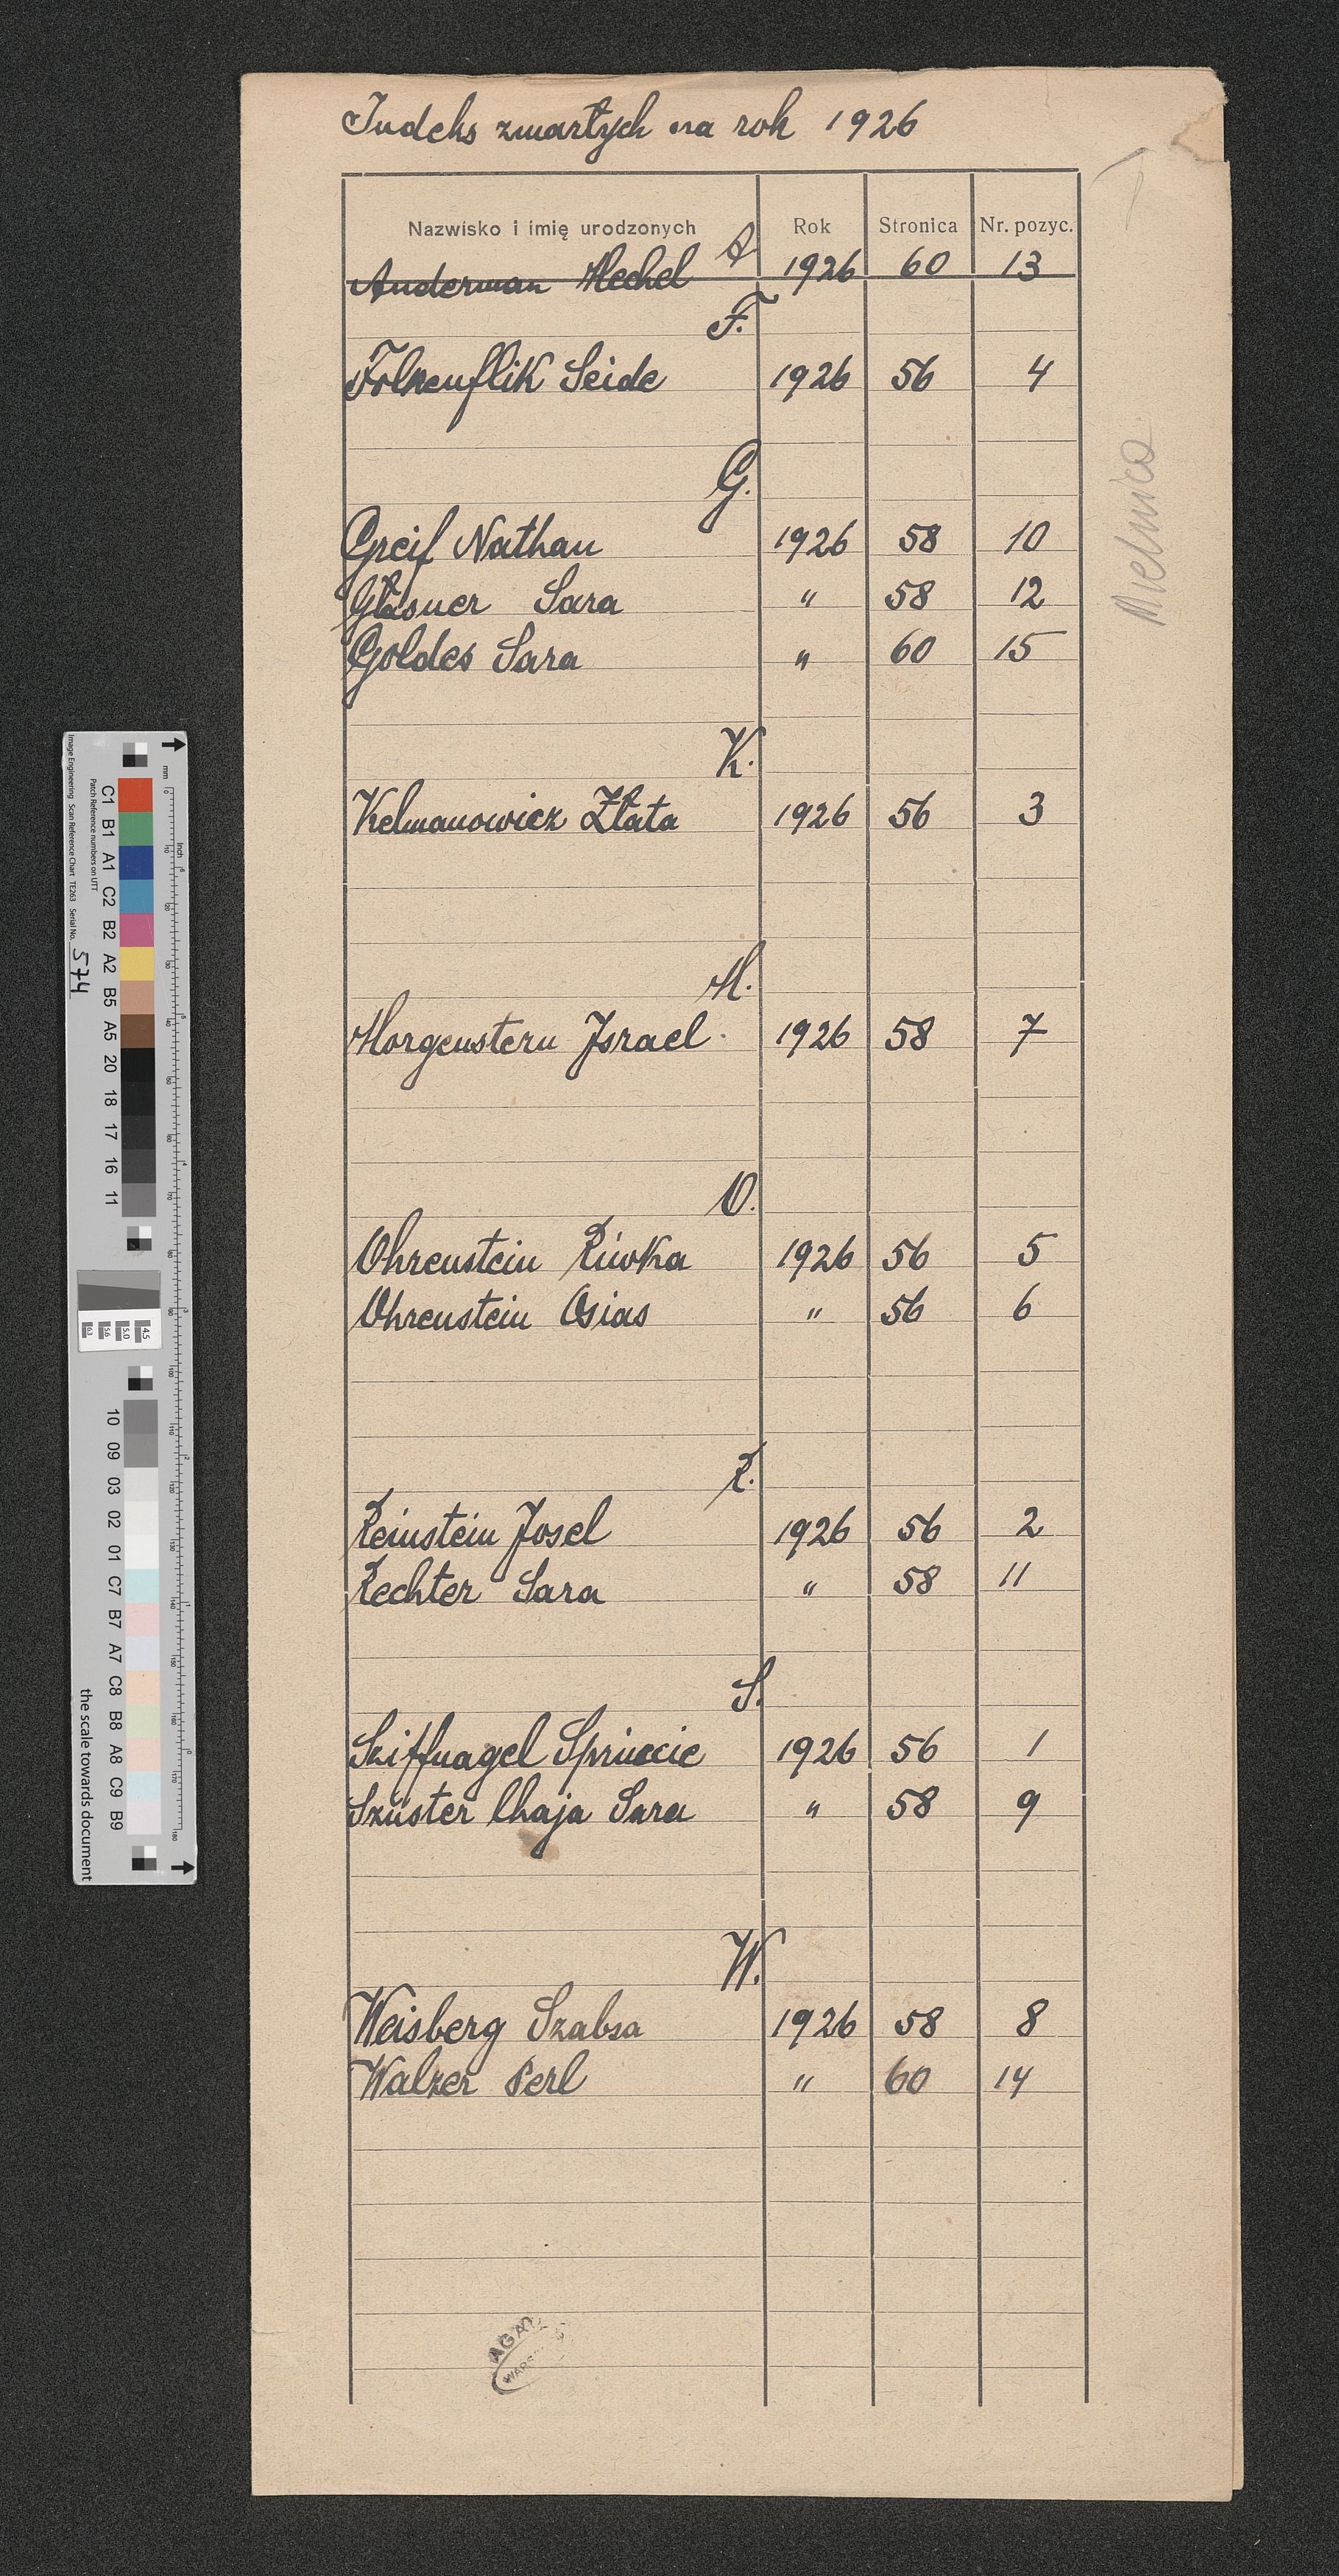 Indeks zmarłych na rok 1926
Nazwisko i imię urodzonych Rok Stronica Nr. pozyc.
A
Anderman Mechel 1926 60 13
F.
Folkenflik Seide 1926 56 4
G.
Greif Nathan 1926 58 10
Glasner Sara " 58 12
Goldes Sara " 60 15
K.
Kelmanowicz Złata 1926 56 3
M.
Morgenstern Israel 1926 58 7
O.
Ohrenstein Riwka 1926 56 5
Ohrenstein Osias " 56 6
R.
Reinstein Josel 1926 56 2
Rechter Sara " 58 11
S.
Sziffnagel 1926 56 1
Szuster Chaja Sara " 58 9
W.
Weisberg Szabsa 1926 58 8
Walzer Perl " 60 14
Mielnica
AGAD
the scale towards document
Image Engineering Scan Reference Chart TE263 Serial No. 574
Patch Reference numbers on UTT
mm
Inch
C1 B1 A1 C2 B2 A2 B5 A5 20 18 17 16 11
10 09 03 02 01 C7 B7 A7 C8 B8 A8 C9 B9